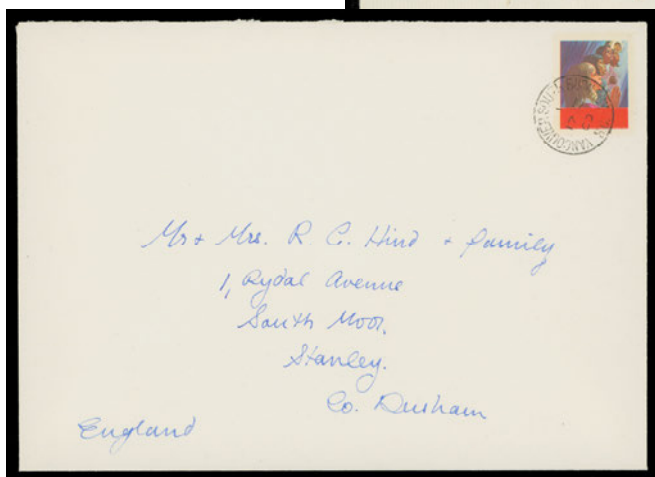 Mr + Mrs. R. C. Hind + family
1, Rydal Avenue
South Moor,
Stanley.
Co. Durham
England